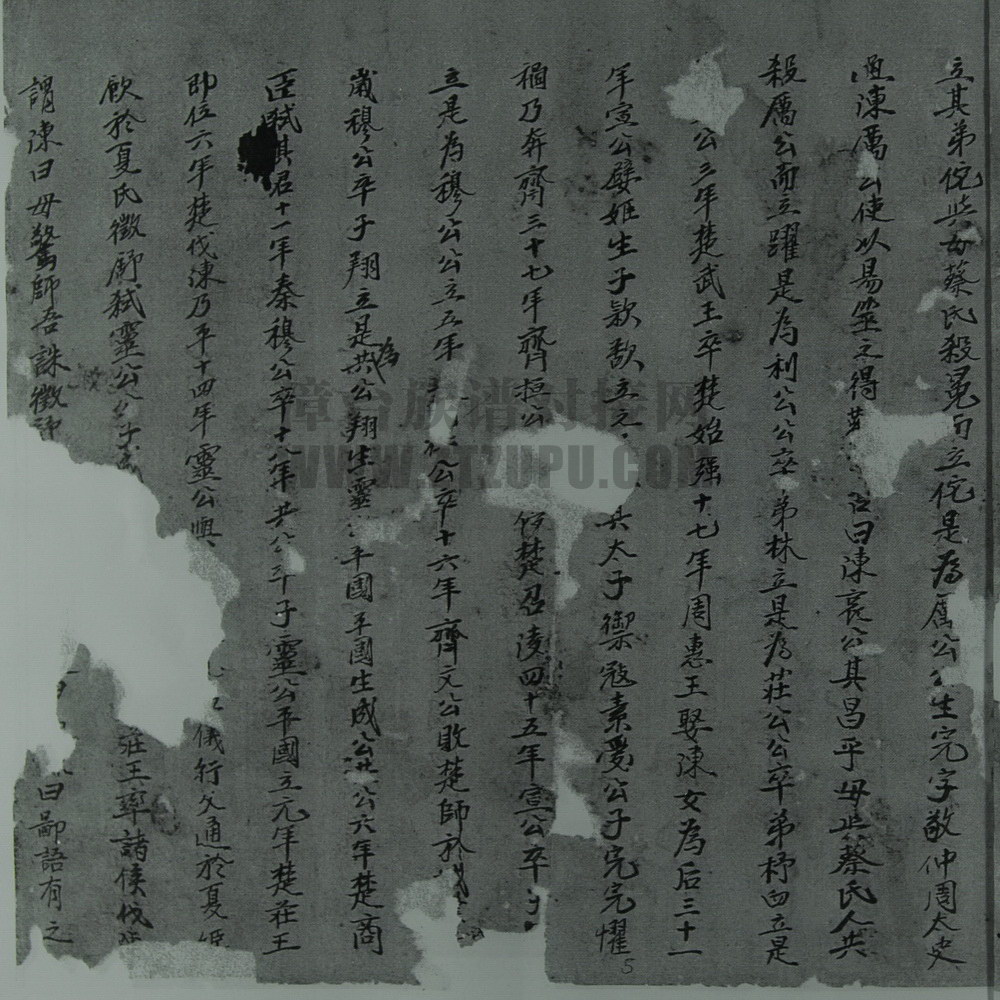 立其弟佗其母蔡氏殺免而立佗是為厲公公生完字敬仲周太史
過陳厲公使以易筮之得 曰陳衰公其昌乎母止蔡氏人共
殺厲公而立躍是為利公公卒弟林立是為莊公公卒弟杵臼立是
公三年楚武王卒楚始强十七年周惠王娶陳女為后三十一
年宣公嬖姬生子款款立之 其太子禦寇素愛公子完完懼
禍乃奔齊三十七年齊桓公 楚召陵四十五年宣公卒子
立是為穆公公立五年 公卒十六年齊文公敗楚師於城
歲穆公卒子翔立是為共公翔生靈 平國平國生成公共公六年楚商
臣弑其君十一年秦穆公卒十八年共公卒子靈公平國立元年楚莊王
即位六年楚伐陳乃平十四年靈公與 儀行父通於夏姬
飲於夏氏徵舒弑靈公 莊王率諸侯伐陳
謂陳曰毋驚師吾誅徵舒 曰鄙語有之
章台族谱对接网
WWW.STZUPU.COM
5